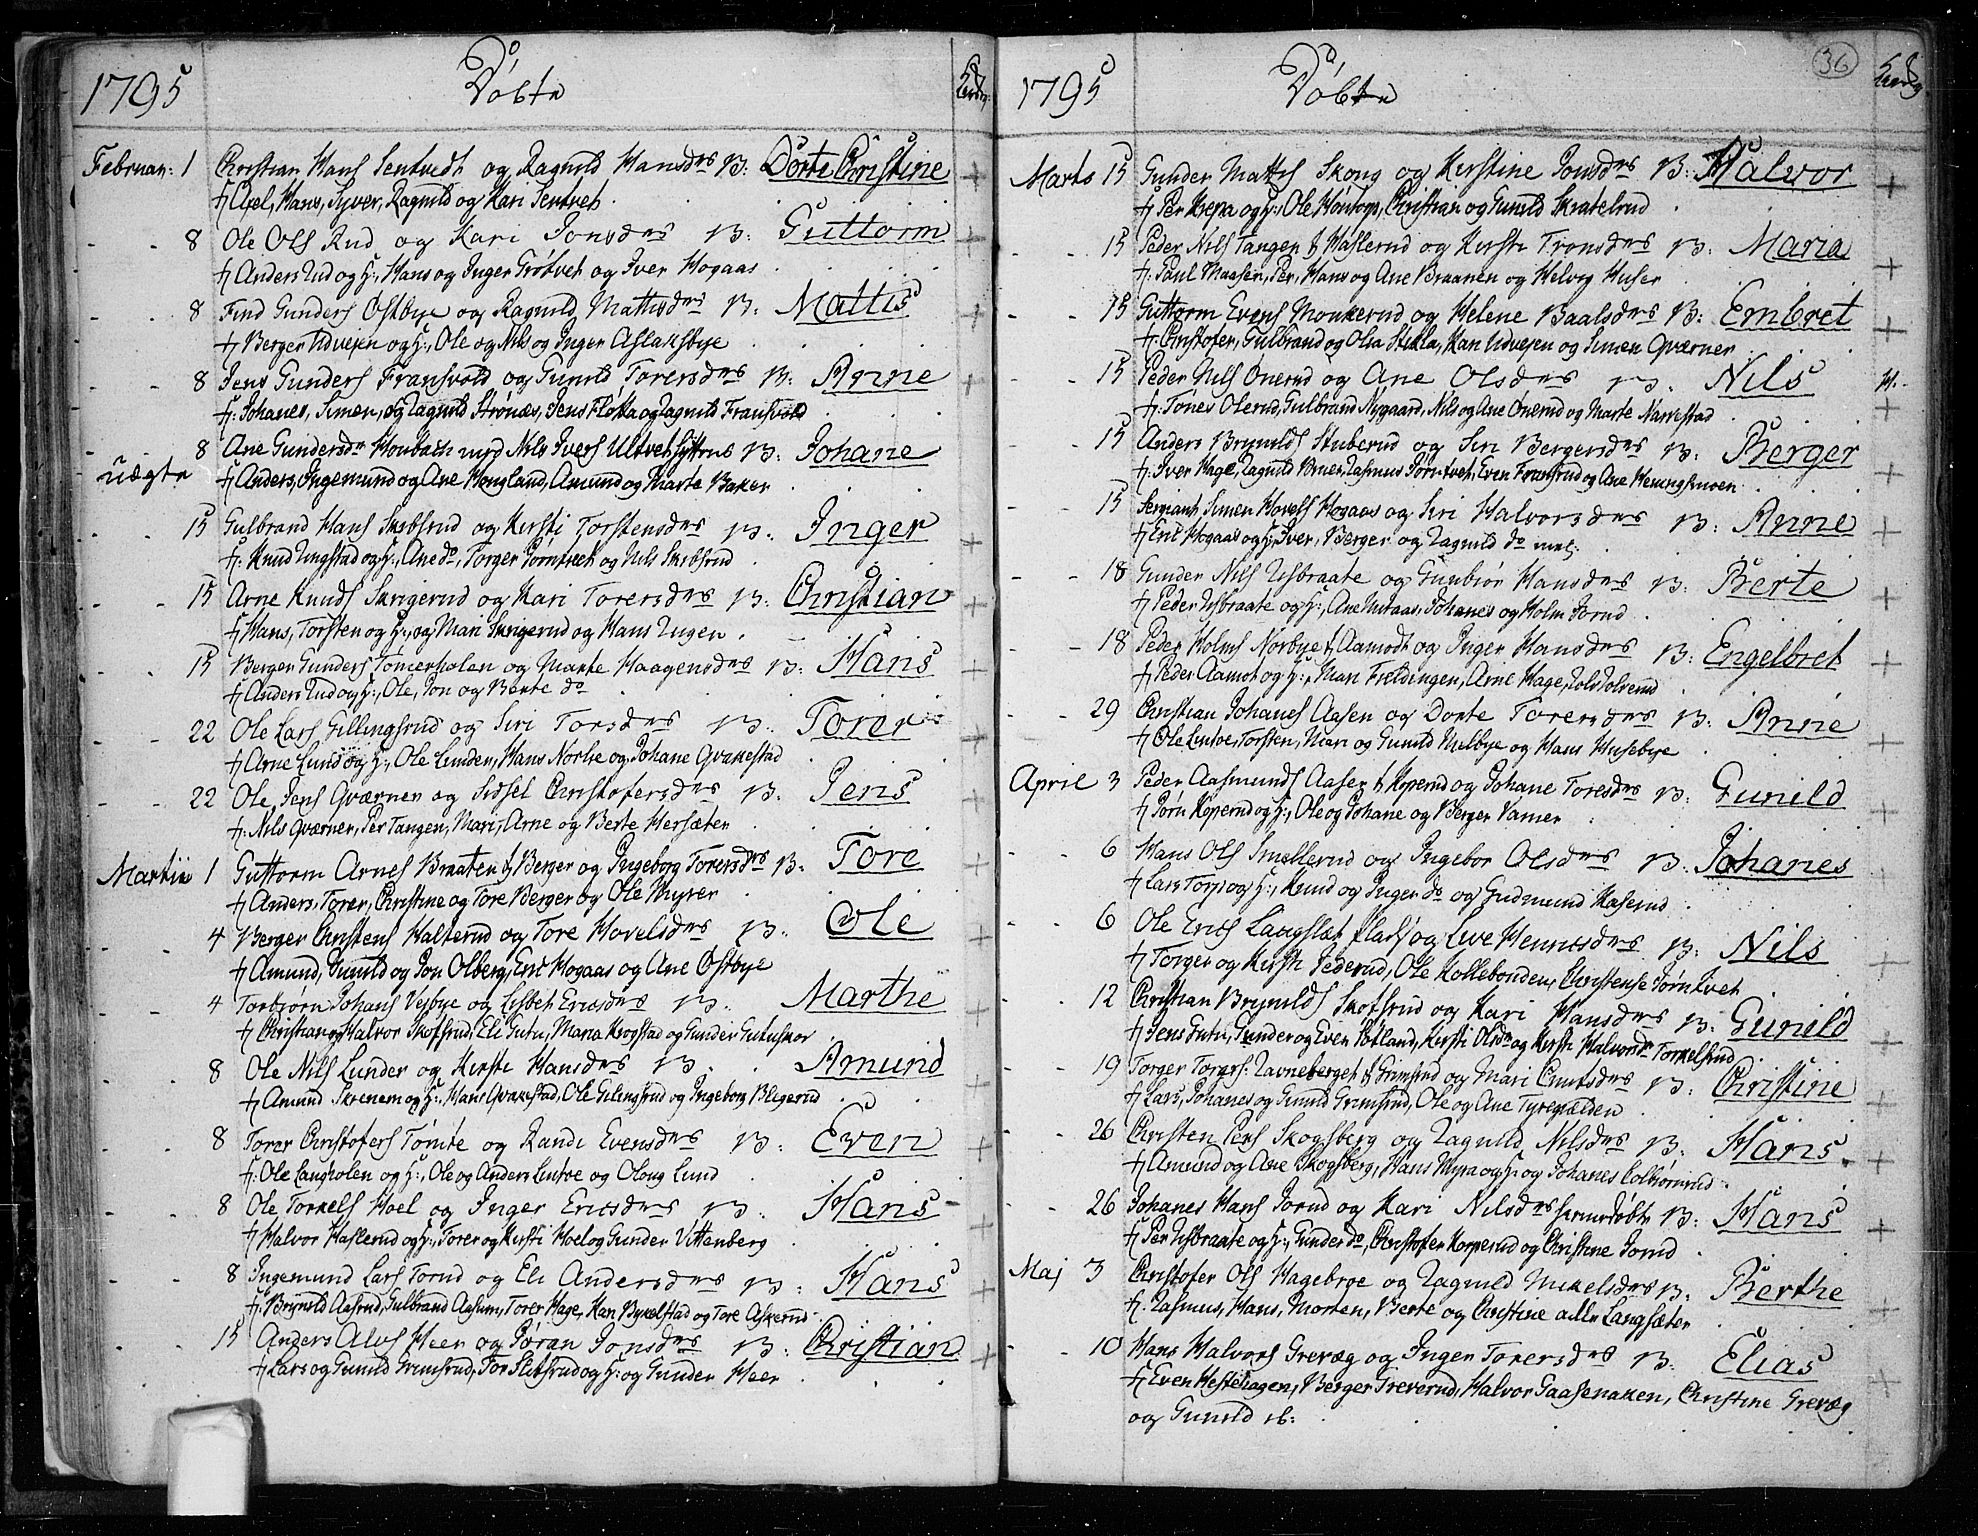 1795 Döbte
Februar: 1 Christian Hans Sentvedt og Ragnild Hansdr B: Dorte Christine
f Axel, Hans, Syver, Ragnild og Kari Sentvet
8 Ole Ols Rud og Kari Jonsdr B: Guttorm
f Anders Rud og H:, Hans og Inger Trötvet og Iver Hogaas
8 Find Gunders Ostbye og Ragnild Mattisdr B: Mattis
f Berger Udvejen og H:, Ole og Nils og Inger Aslaksbye
8 Jens Gunders Fransvold og Gunild Torersdr B: Anne
f: Johanes, Simen, og Ragnild Strönæs, Jens Flotta og Ragnild Fransvold
8 Ane Gundersdr med Nils Ivers B: Johane
uægte f Anders, Ingemund og Ane Hougland, Amund og Marte Baker
15 Gulbrand Hans Skibsrud og Kirsti Torstensdr B: Inger
f: Knud Ringstad og H:, Ane do, Torger Jörntvet og Nils Skibsrud
15 Arne Knuds Skrigerud og Kari Torersdr B: Christian
f Hans, Torsten og H:, og Mari Skrigerud og Hans Rugen
15 Berger Gunders Tömerholen og Marte Haagensdr B: Hans
f Anders Rud og H:, Ole, Jon og Berte do
22 Ole Lars Gillingsrud og Siri Torsdr B: Torer
f Arne Lund og H:, Ole Lunden, Hans Norbye og Johane Qvakestad
22 Ole Jens Qværner og Sidsel Christofersdr B: Jens
f: Nils Qværner, Per Tangen, Mari, Arne og Berte Hersæter
Martii 1 Guttorm Arnes Braaten f Berger og Ingeborg Torersdr B: Tore
f Anders, Torer, Christine og Tore Berger og Ole Myrer
4 Berger Christens Halterud og Tore Hovelsdr B: Ole
f Amund, Gunild og Jon Olberg, Eric Hogaas og Ane Östbye
4 Torbjörn Johans Vesbye og Lisbet Ericsdr B: Marthe
f Christian og Halvor Skofsrud, Eli Gutu, Maria Krogstad og Gunder Gutuskor
8 Ole Nils Lunder og Kirsti Hansdr B: Amund
f Amund Skrenem og H:, Hans Qvakestad, Ole Gilingsrud og Ingeborg Bligerud
8 Torer Christofers Tömte og Randi Evensdr B: Even
f: Ole Langholen og H:, Ole og Anders Lintoe og Oloug Lund
8 Ole Torkels Hoel og Inger Ericsdr B: Hans
f Halvor Haslerud og H:, Torer og Kirsti Hoel og Gunder Vittenberg
8 Ingemund Lars Torud og Eli Andersdr B: Hans
f: Brynild Aasrud, Gulbrand Aasum, Torer Hage, Kari Bykelstad og Tore Askerud
15 Anders Alvs Heer og Jöran Jonsdr B: Christian
f Lars og Gunild Grimsrud, Tor Slitsrud og H: og Gunder Heer
1795 Döbte 36
Marts 15 Gunder Mattis Skoug og Kirstine Jonsdr B: Halvor
f Per Krepa og H:, Ole Höntorp, Christian og Gunild Skratelrud
15 Peder Nils Tangen f Haslerud og Kirsti Tronsdr B: Maria
f: Paul Maasen, Per, Hans og Ane Braanen og Helvig Huser
15 Guttorm Evens Monkerud og Helene Baalsdr B: Embret
f: Christofer, Gulbrand og Olia Stikla, Kari Udvejen og Simen Qværner
15 Peder Nils Önerud og Ane Olsdr B: Nils
f: Tönes Olerud, Gulbrand Nygaard, Nils og Ane Önerud og Marte Narvestad
15 Anders Brynilds Stuberud og Siri Bergersdr B: Berger
f: Iver Hage, Ragnild Bruer, Rasmus Jörntvet, Even Fransrud og Ane Heningsmoen
15 Serniant Simen Hovels Hogaas og Siri Halvorsdr B: Anne
f Eric Hogaas og H:, Iver, Berger og Ragnild do
18 Gunder Nils Risbraate og Gunbiör Hansdr B: Berte
f Peder Risbraate og H:, Ane, Johanes og Holm Jorud
18 Peder Holms Norbye f Aamodt og Inger Hansdr B: Engelbret
f Peder Aamot og H:, Mari Fieldingen, Arne Hage,
29 Christian Johanes Aasen og Dorte Torersdr B: Anne
f Ole Lintoe, Torsten, Mari og Gunild Melbye og Hans Husebye
April 3 Peder Aasmunds Aasen f Koperud og Johane Toresdr B: Gunild
f Jörn Koperud og H:, Ole og Johane og Berger Vamer
6 Hans Ols Smellerud og Ingebor Olsdr B: Johanes
f Lars Torp og H:, Knud og Inger do og Gudmund Kaserud
6 Ole Erics Langslæt Plads og Live Henricsdr B: Nils
f Torger og Kirsti Jederud, Ole Kollebonden, Christense Jörntvet
12 Christian Brynilds Skofsrud og Kari Hansdr B: Gunild
f Jens Gutu, Gunder og Even Rotland, Kirsti Olsdr og Kirsti Halvorsdr Torkelsrud
19 Torger Torgers: Ravneberget f Grimsrud og Mari Cnutsdr B: Christine
f Lars, Johanes og Gunild Grimsrud, Ole og Ane Tyrigrælden
26 Christen Pers Skogsberg og Ragnild Nilsdr B: Hans
f Amund og Ane Skogsberg, Hans Myra og H: og Johanes Colbiörnrud
26 Johanes Hans Jorud og Kari Nilsdr hiemedöbt B: Hans
f Per Risbraate og H:, Gunder do, Christofer Korperud og Christine Jorud
Maj 3 Christofer Ols Hagebroe og Ragnild Mikelsdr B: Berthe
f: Rasmus, Hans, Morten, Berte og Christine alle Langsæter
10 Hans Halvors Grevæg og Inger Torersdr B: Elias
f Even Hestehagen, Berger Greverud, Halvor Gaasenaken, Christine Grevæg
og Gunild ib: